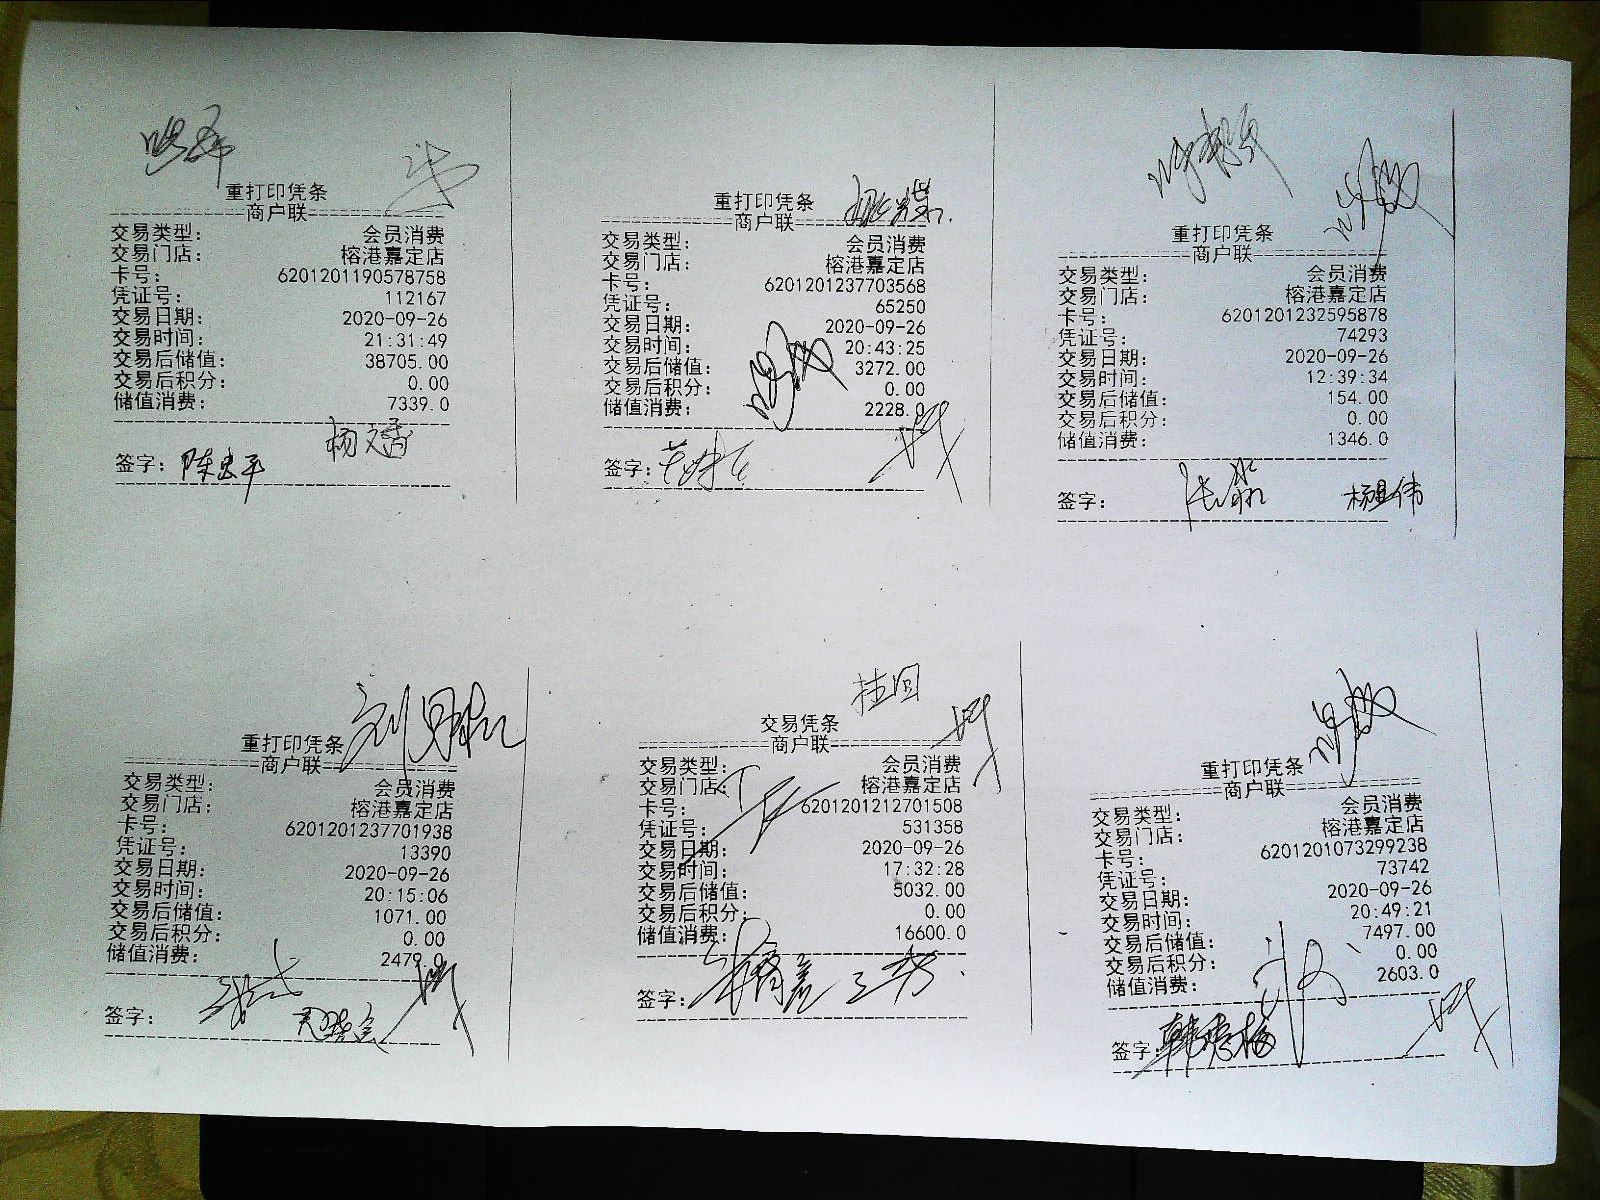 重打印凭条
商户联
交易类型: 会员消费
交易门店: 榕港嘉定店
卡号: 6201201190578758
凭证号: 112167
交易日期: 2020-09-26
交易时间: 21:31:49
交易后储值: 38705.00
交易后积分: 0.00
储值消费: 7339.0
杨文香
签字: 陈忠平
重打印凭条
商户联
交易类型: 会员消费
交易门店: 榕港嘉定店
卡号: 6201201237703568
凭证号: 65250
交易日期: 2020-09-26
交易时间: 20:43:25
交易后储值: 3272.00
交易后积分: 0.00
储值消费: 2228.0
签字:
重打印凭条
商户联
交易类型: 会员消费
交易门店: 榕港嘉定店
卡号: 6201201232595878
凭证号: 74293
交易日期: 2020-09-26
交易时间: 12:39:34
交易后储值: 154.00
交易后积分: 0.00
储值消费: 1346.0
签字:
重打印凭条
商户联
交易类型: 会员消费
交易门店: 榕港嘉定店
卡号: 6201201237701938
凭证号: 13390
交易日期: 2020-09-26
交易时间: 20:15:06
交易后储值: 1071.00
交易后积分: 0.00
储值消费: 2479.0
签字:
挂回
交易凭条
商户联
交易类型: 会员消费
交易门店: 榕港嘉定店
卡号: 6201201212701508
凭证号: 531358
交易日期: 2020-09-26
交易时间: 17:32:28
交易后储值: 5032.00
交易后积分: 0.00
储值消费: 16600.0
签字:
重打印凭条
商户联
交易类型: 会员消费
交易门店: 榕港嘉定店
卡号: 6201201073299238
凭证号: 73742
交易日期: 2020-09-26
交易时间: 20:49:21
交易后储值: 7497.00
交易后积分: 0.00
储值消费: 2603.0
签字: